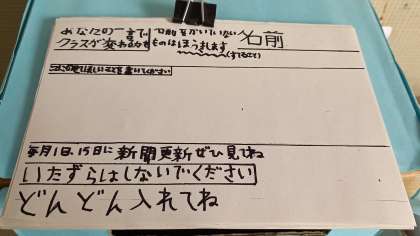 あなたの一言で 名前をかいていない 名前
クラスが変わるかも ものはほうきします
(すてること)
書いてください
毎月1日、15日に 新聞更新ぜひ見てね
いたずらはしないでください
どんどん入れてね